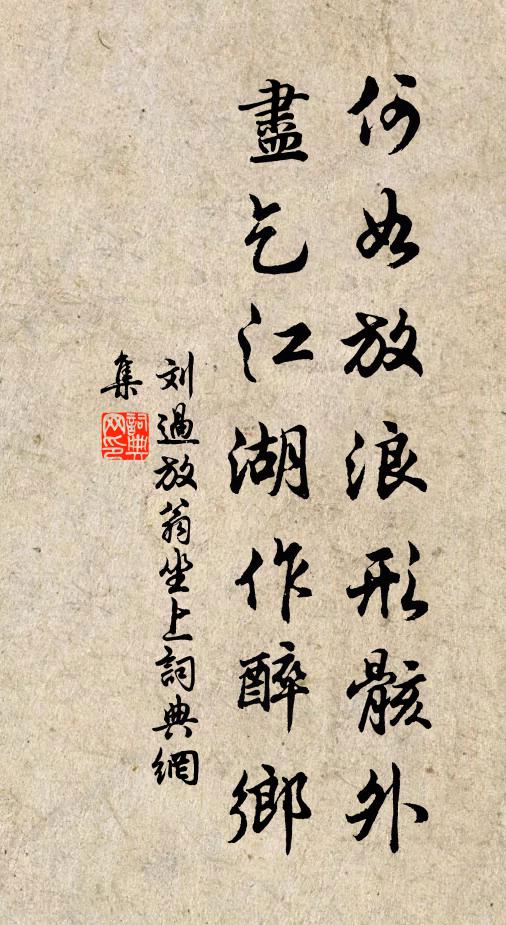 何如放浪形骸外
盡乞江湖作醉鄉
刘過放翁坐上詞典網
集
詞典网印